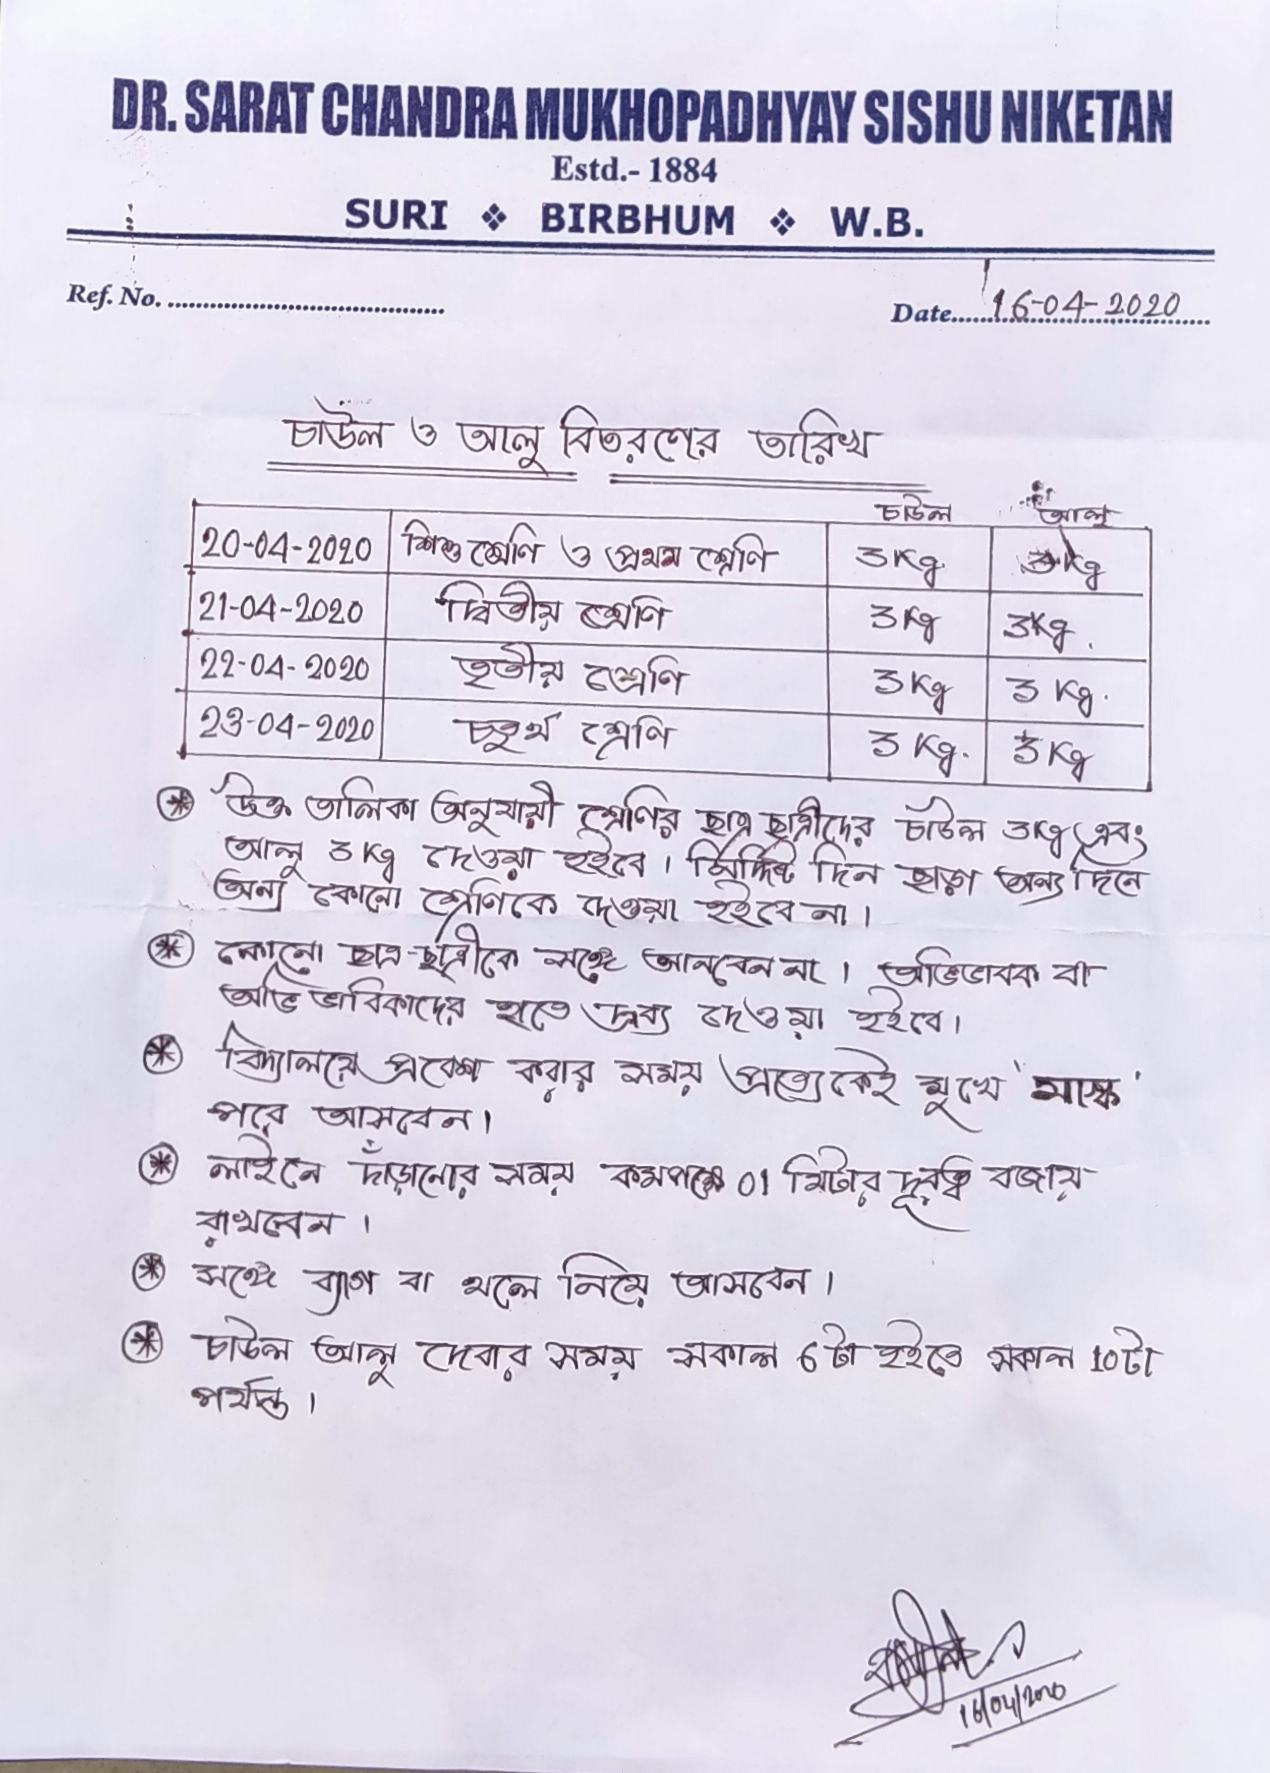 DR. SARAT CHANDRA MUKHOPADHYAY SISHU NIKETAN
Estd.- 1884
SURI ❖ BIRBHUM ❖ W.B.
Ref. No. ........................................
Date......16-04-2020
চাউল ও আলু বিতরণের তারিখ
চাউল আলু
20-04-2020 শিশু শ্রেণি ও প্রথম শ্রেণি 3Kg 3Kg
21-04-2020 দ্বিতীয় শ্রেণি 3Kg 3Kg.
22-04-2020 তৃতীয় শ্রেণি 3Kg 3Kg.
23-04-2020 চতুর্থ শ্রেণি 3Kg. 3Kg
উক্ত তালিকা অনুযায়ী শ্রেণির ছাত্র ছাত্রীদের চাউল 3Kg এবং
আলু 3Kg দেওয়া হইবে। নির্দ্দিষ্ট দিন ছাড়া অন্য দিনে
অন্য কোনো শ্রেণিকে দেওয়া হইবে না।
কোনো ছাত্র-ছাত্রীকে সঙ্গে আনবেন না। অভিভাবক বা
অভিভাবিকাদের হাতে দ্রব্য দেওয়া হইবে।
বিদ্যালয়ে প্রবেশ করার সময় প্রত্যেকেই মুখে 'মাস্ক'
পরে আসবেন।
লাইনে দাঁড়ানোর সময় কমপক্ষে 01 মিটার দূরত্ব বজায়
রাখবেন।
সঙ্গে ব্যাগ বা থলে নিয়ে আসবেন।
চাউল আলু দেবার সময় সকাল 6টা হইতে সকাল 10টা
পর্যন্ত।
16/04/2020